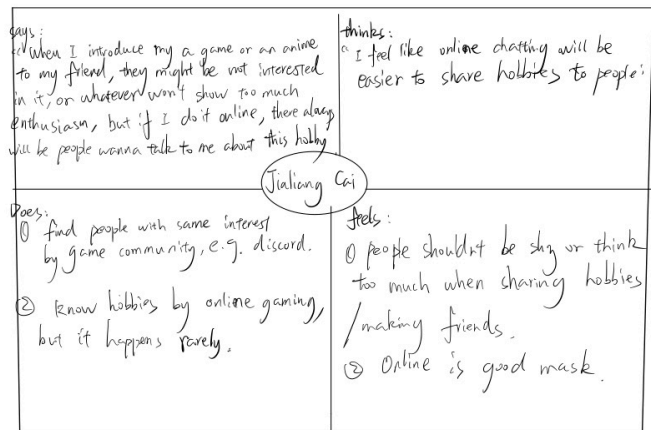 says:
"When I introduce my a game or an anime
to my friend, they might be not interested
in it, or whatever won't show too much
enthusiasm, but if I do it online, there always
will be people wanna talk to me about this hobby
thinks:
"I feel like online chatting will be
easier to share hobbies to people"
Jialiang Cai
Does:
① find people with same interest
by game community, e.g. discord.
② know hobbies by online gaming,
but it happens rarely.
feels:
① people shouldn't be shy or think
too much when sharing hobbies
/making friends.
② Online is good mask.